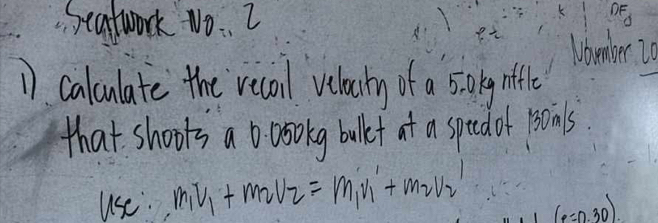 Seatwork No. 2
November 20
1) Calculate the recoil velocity of a 5.0kg riffle
that shoots a 0.050kg bullet at a speed of 130m/s.
Use: m₁v₁ + m₂v₂ = m₁v₁' + m₂v₂'
(e=0.30).